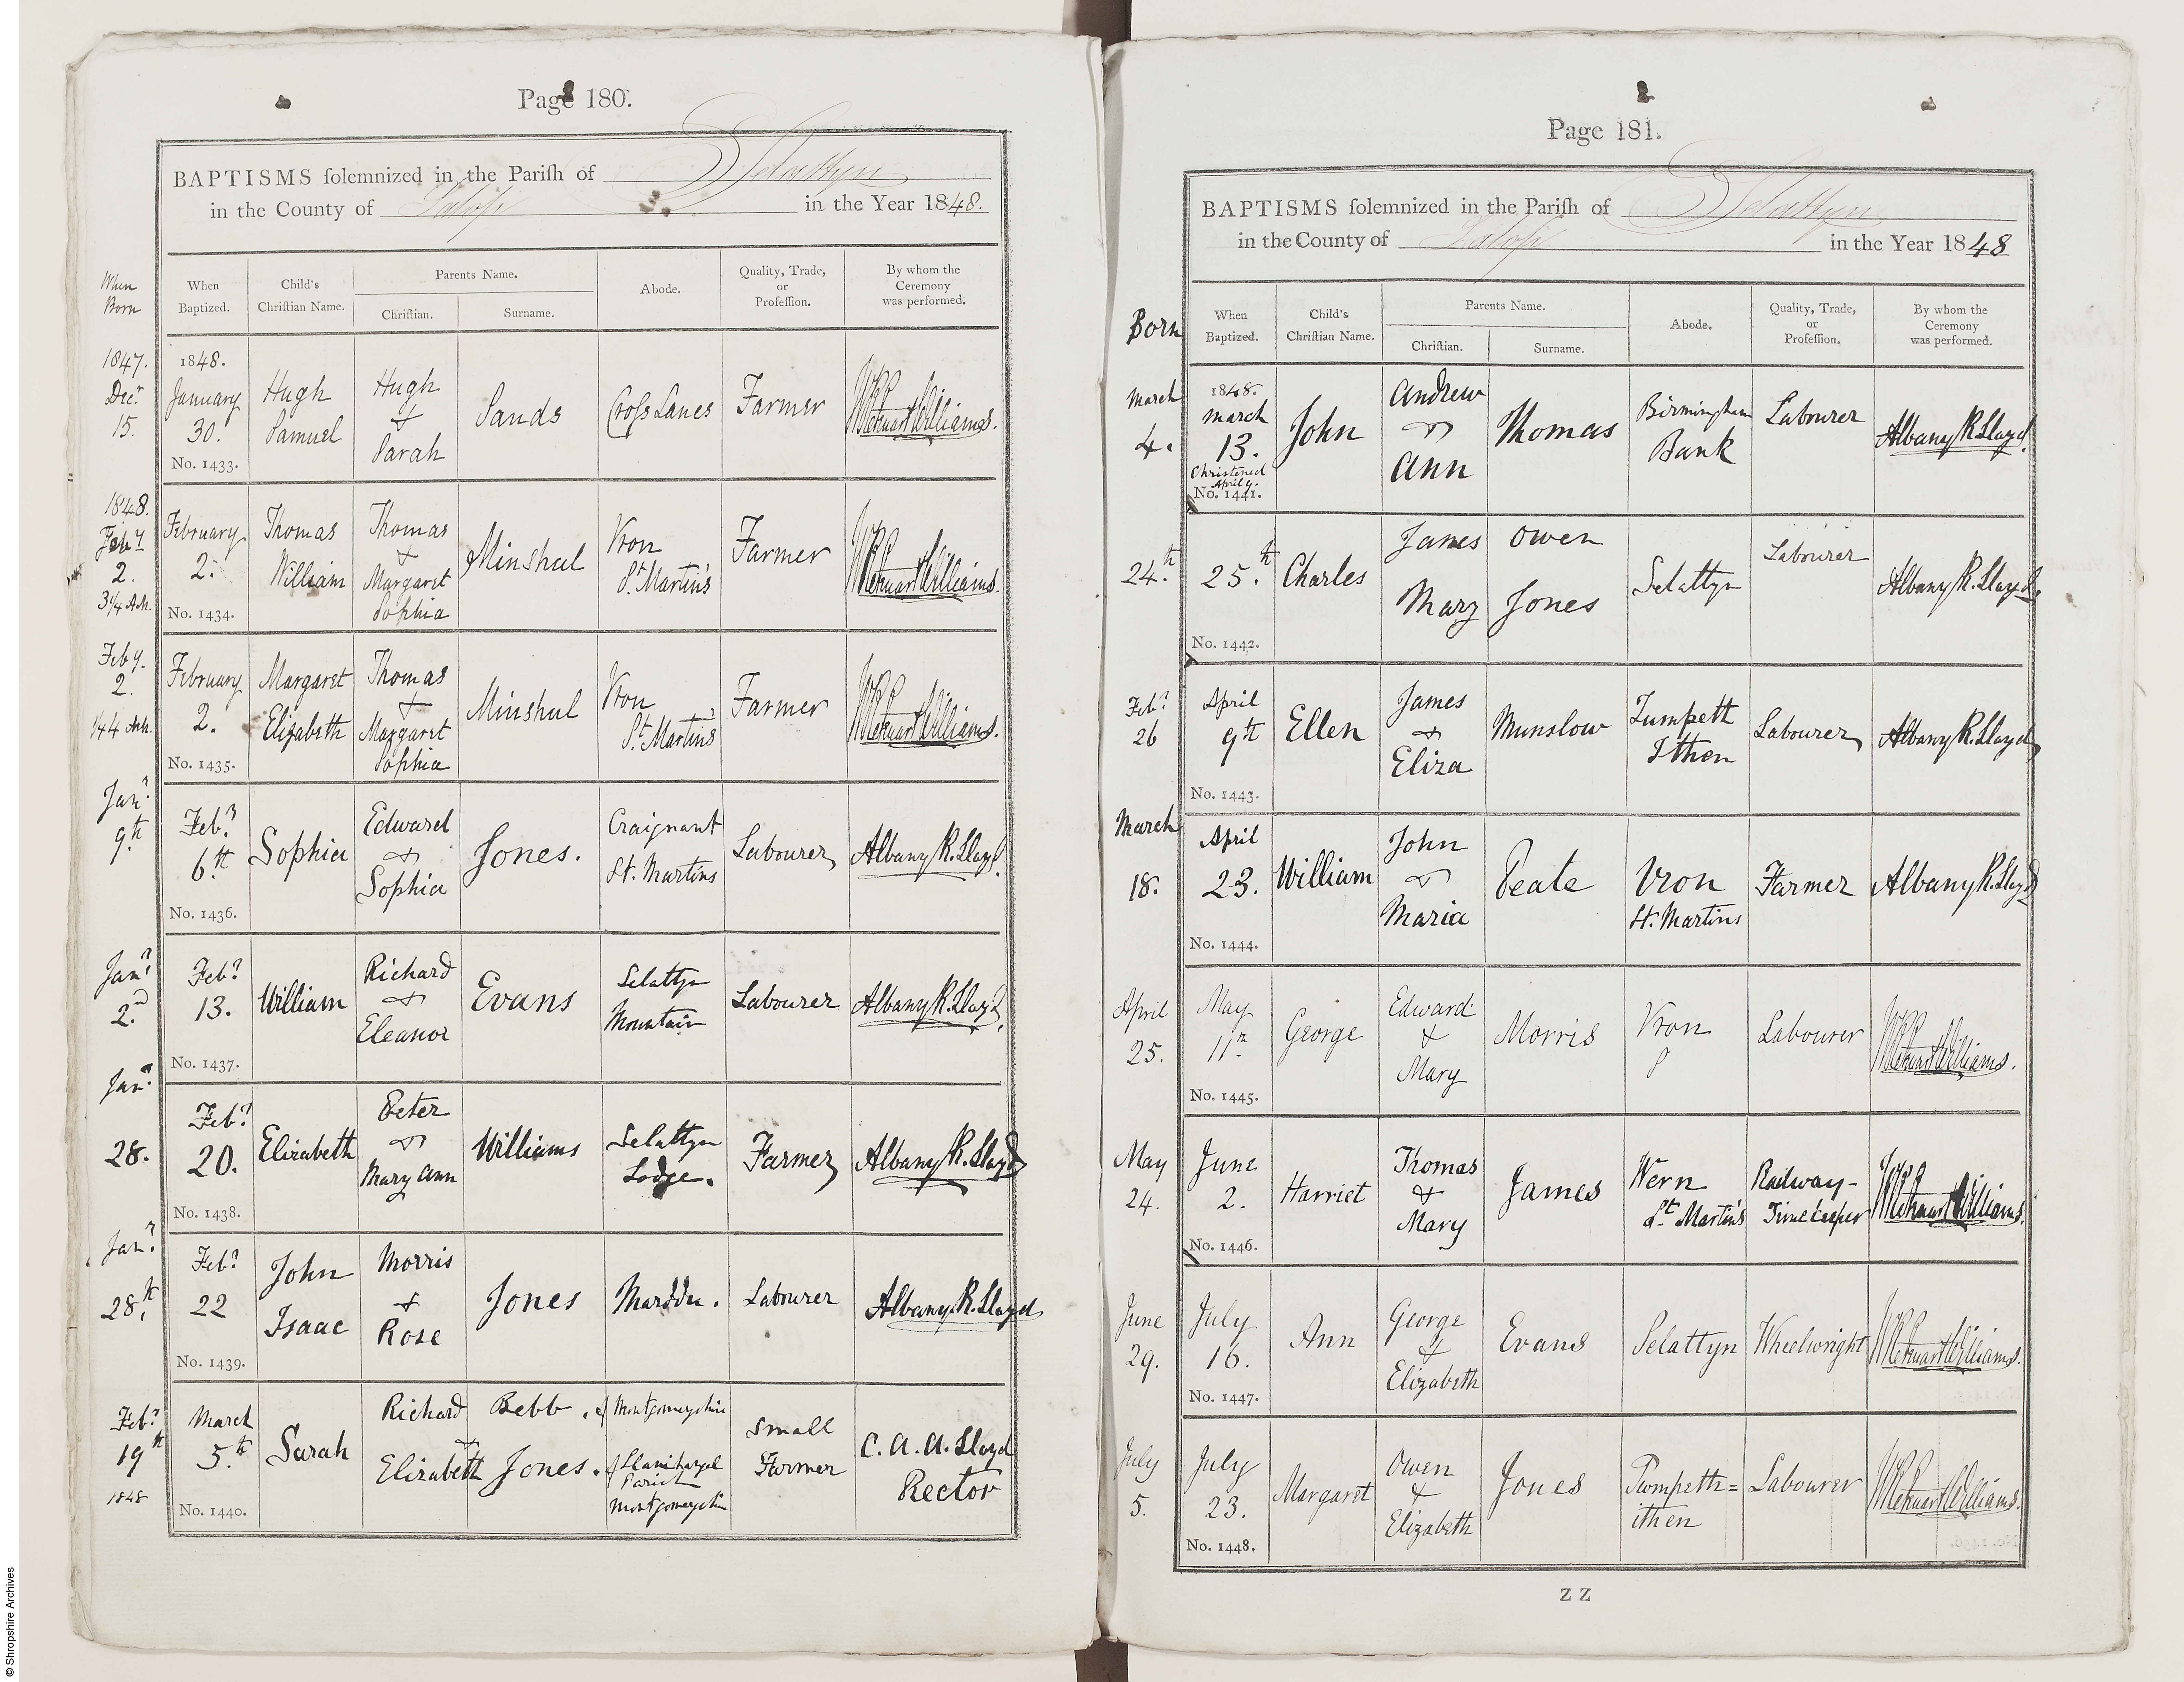 Page 180.
BAPTISMS solemnized in the Parish of Selattyn
in the County of Salop in the Year 1848.
When Born
When Baptized.
Child's Christian Name.
Parents Name.
Christian.
Surname.
Abode.
Quality, Trade, or Profession.
By whom the Ceremony was performed.
1847. Decr 15.
1848. January 30.
No. 1433.
Hugh Samuel
Hugh & Sarah
Sands
Cross Lanes
Farmer
Williams.
1848. Feby 2. 3 1/4 A.M.
February 2.
No. 1434.
Thomas William
Thomas & Margaret Sophia
Minshul
Vron St. Martin's
Farmer
Williams.
Feby. 2.
February 2.
No. 1435.
Margaret Elizabeth
Thomas & Margaret Sophia
Minshul
Vron St. Martin's
Farmer
Williams.
Jany 9th
Feby 6th
No. 1436.
Sophia
Edward & Sophia
Jones.
Craignant St. Martins
Labourer
Albany R. Lloyd.
Jany 2nd
Feby 13.
No. 1437.
William
Richard & Eleanor
Evans
Selattyn Mountain
Labourer
Albany R. Lloyd.
Jany 28.
Feby 20.
No. 1438.
Elizabeth
Peter & Mary Ann
Williams
Selattyn Lodge.
Farmer
Albany R. Lloyd
Jany 28th
Feby 22
No. 1439.
John Isaac
Morris & Rose
Jones
Marddu.
Labourer
Albany R. Lloyd
Feby 19th 1848
March 5th
No. 1440.
Sarah
Richard Bebb. of Montgomeryshire
& Elizabeth Jones. of Parish Montgomeryshire
Small Farmer
C. A. A. Lloyd Rector
Page 181.
BAPTISMS solemnized in the Parish of Selattyn
in the County of Salop in the Year 1848
Born
When Baptized.
Child's Christian Name.
Parents Name.
Christian.
Surname.
Abode.
Quality, Trade, or Profession.
By whom the Ceremony was performed.
March 4.
1848. March 13. Christened April 9.
No. 1441.
John
Andrew & Ann
Thomas
Birmingham Bank
Labourer
Albany R Lloyd.
24.th
25.th
No. 1442.
Charles
James Owen
Mary Jones
Selattyn
Labourer
Albany R. Lloyd.
Feby 26
April 9th
No. 1443.
Ellen
James & Eliza
Munslow
Ithen
Labourer
Albany R. Lloyd
March 18.
April 23.
No. 1444.
William
John & Maria
Peate
Vron St. Martins
Farmer
Albany R. Lloyd
April 25.
May 11th
No. 1445.
George
Edward & Mary
Morris
Vron
Labourer
Williams.
May 24.
June 2.
No. 1446.
Harriet
Thomas & Mary
James
Wern St. Martin's
Railway-Timekeeper
Williams.
June 29.
July 16.
No. 1447.
Ann
George & Elizabeth
Evans
Selattyn
Wheelwright
Williams.
July 5.
July 23.
No. 1448.
Margaret
Owen & Elizabeth
Jones
Pwmpeth=ithen
Labourer
Williams.
Z Z
© Shropshire Archives